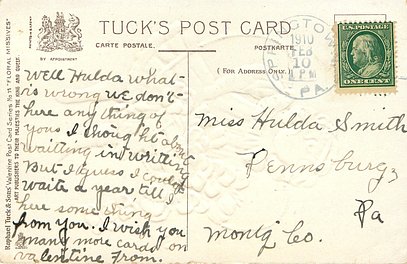 TUCK'S POST CARD
CARTE POSTALE.
POSTKARTE.
BY APPOINTMENT
( For Address Only. )
Raphael Tuck & Sons' Valentine Post Card Series No. 11 "FLORAL MISSIVES"
ART PUBLISHERS TO THEIR MAJESTIES THE KING AND QUEEN
1910
FEB
10
PM
PA.
ONE CENT
Well Hulda what
is wrong we don't
here any thing of
you I though about
waitting in writing
But I guess I could
waite a year till I
here some thing
from you. I wish you
many more cards on
valentine from.
Miss Hulda Smith
Pennsburg,
Pa
Montg Co.